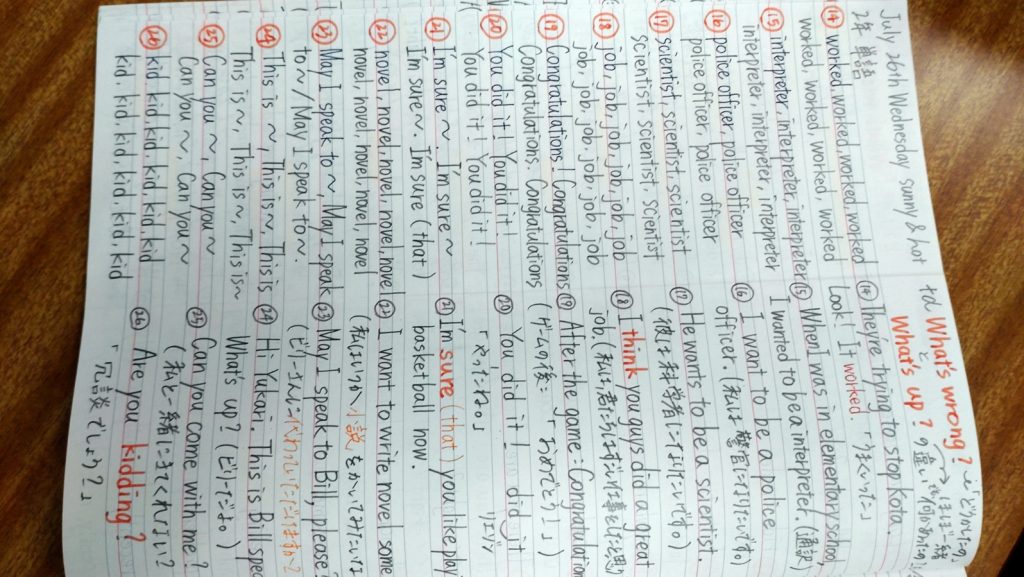 July 26th Wednesday sunny & hot
2年 単語
td What's wrong?
と
What's up?
⑭ worked, worked, worked, worked
worked, worked, worked, worked
⑮ interpreter, interpreter, interpreter
interpreter, interpreter, interpreter
⑯ police officer, police officer
police officer, police officer
⑰ scientist, scientist, scientist
scientist, scientist, scientist
⑱ job, job, job, job, job, job
job, job, job, job, job, job
⑲ Congratulations! Congratulations
Congratulations. Congratulations
⑳ You did it! You did it!
You did it! You did it!
㉑ I'm sure ~. I'm sure ~
I'm sure ~. I'm sure (that)
㉒ novel, novel, novel, novel, novel
novel, novel, novel, novel
㉓ May I speak to ~, May I speak
to ~/May I speak to ~.
㉔ This is ~, This is ~, This is
This is ~, This is ~, This is ~
㉕ Can you ~, Can you ~
Can you ~, Can you ~
㉖ kid, kid, kid, kid, kid, kid
kid, kid, kid, kid, kid, kid
⑭ They're trying to stop Kota.
Look! It worked. 「うまくいった」
⑮ When I was in elementary school,
I wanted to be a interpreter. (通訳)
⑯ I want to be a police
officer. (私は警官になりたいです。)
⑰ He wants to be a scientist.
(彼は科学者になりたいです。)
⑱ I think you guys did a great
job.
⑲ After the game: Congratulation
(ゲームの後: 「おめでとう!」)
⑳ You did it! did it
「やったね。」
㉑ I'm sure (that) you like play
basketball now.
㉒ I want to write novel some
㉓ May I speak to Bill, please?
㉔ Hi Yukari. This is Bill spea
What's up? (ビリーだよ。)
㉕ Can you come with me?
(私と一緒にきてくれない?)
㉖ Are you kidding?
「冗談でしょう?」